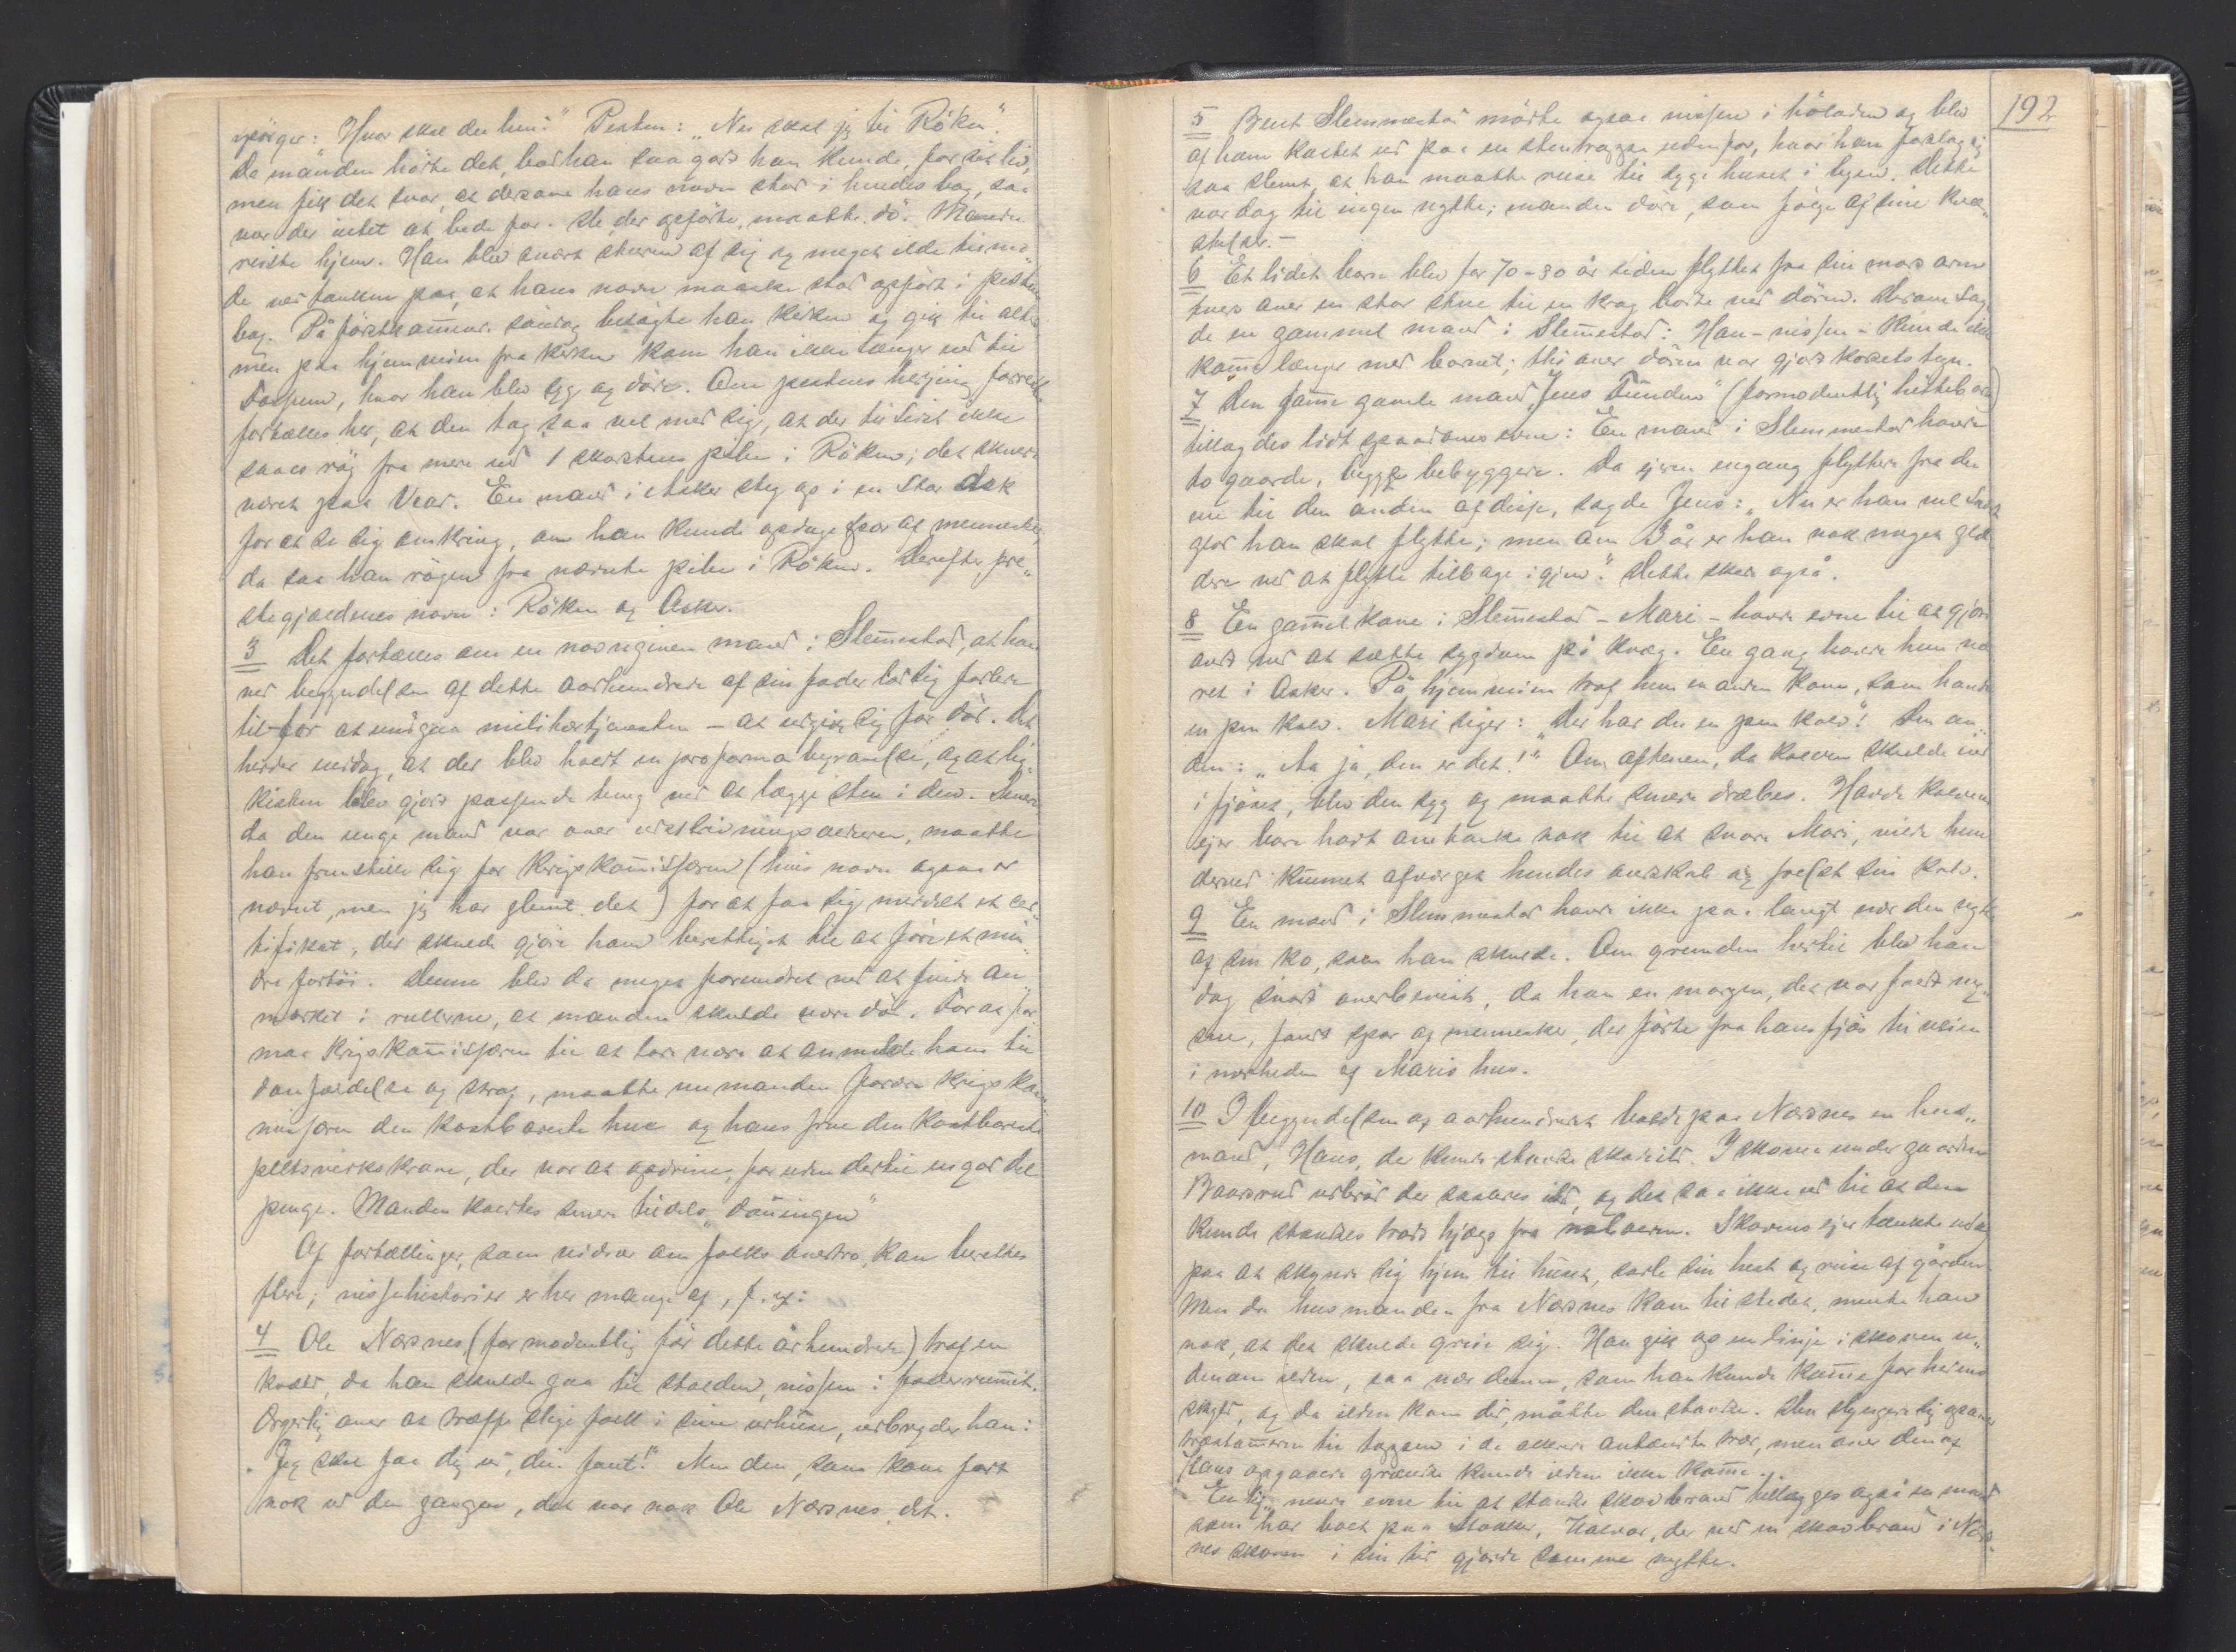 spörger: "Hvor skal du hen?" Pesten: "Nu skal jeg til Röken".
Da manden hörte det, bad han saa godt han kunde, for sit liv,
men fik det svar, at dersom hans navn stod i hendes bog, saa
var der intet at bede for. De, der opförte, maatte dö. Manden
reiste hjem. Han blev snart skuren af sig og meget ilde tilmo-
de ved tanken paa, at hans navn maaske stod opfört i pestens
bog. På förstkommende söndag besögte han kirken og gik til alters
men paa hjemveien fra kirken kom han ikke længer end til
, hvor han blev syg og döde. Om pestens herjing forresten
fortælles her, at den tog saa vel med sig, at der til sidst ikke
saaes rög fra mere end 1 skorstens pibe i Röken; det skulde
været paa Vear. En mand i Asker steg op i en stor Ask
for at se sig omkring, om han kunde opdage spor af mennesker,
da saa han rögen fra nævnte pibe i Röken. Derefter præ-
stegjældenes navn: Röken og Asker.
3 Det fortælles om en navngiven mand i Slemmestad, at han
ved begyndelsen af dette aarhundrede af sin fader lod sig forlede
til - for at undgaa militærtjenesten - at udgive sig for död. Det
heder endog, at der blev holdt en proforma begravelse, og at lig-
kisten blev gjort passende tung ved at lægge sten i den. Senere
da den unge mand var over udskrivningsalderen, maatte
han fremstille sig for krigskommissæren (hvis navn ogsaa er
nævnt, men jeg har glemt det) for at faa sig meddelt et cer-
tifikat, der skulde gjöre ham berettiget til at före et min-
dre fartöi. Denne blev da meget forundret ved at finde an-
mærket i rullerne, at manden skulde være död. For at for-
maa krigskommissæren til at lade være at anmelde ham til
domfældelse og straf, maatte nu manden forære krigskom-
missæren den kostbareste hue og hans frue den kostbareste
peltsverkskrave, der var at opdrive, foruden dertil en god del
penge. Manden kaldtes senere tildels "dauingen"
Af fortællinger, som vidner om folks overtro, kan berettes
flere; nissehistorier er her mange af, f. ex:
4 Ole Næsnes (formodentlig för dette århundrede) traf en
kveld, da han skulde gaa til stalden, nissen i foderrummet.
Ærgerlig over at træffe slige folk i sine udhuse, udbryder han:
"Jeg skal faa dig ud, din fant!" Men den, som kom fort
nok ud den gangen, det var nok Ole Næsnes, det.
192
5 Bent Slemmestad mödte ogsaa nissen i höladen og blev
af ham kastet ud paa en stentrappe udenfor, hvor han forslog sig
saa slemt, at han maatte reise til sygehuset i byen. Dette
var dog til ingen nytte; manden döde, som fölge af sine kvæ-
stelser. -
6 Et lidet barn blev for 70-80 år siden flyttet fra sin mors arm
tvers over en stor stue til en krog borte ved dören. Herom sag-
de en gammel mand i Slemmestad: Han - nissen - kunde ikke
komme længer med barnet; thi over dören var gjort korsets tegn.
7 Den samme gamle mand "Jens Fünden" (formodentlig hittebarn)
tillagdes lidt spaadomsevne: En mand i Slemmestad havde
to gaarde, begge bebyggede. Da ejeren engang flyttede fra den
ene til den anden af disse, sagde Jens: "Nu er han vel saa
glad han skal flytte; men om 3 år er han nok meget gla-
dere ved at flytte tilbage igjen." Dette skede også.
8 En gammel kone i Slemmestad - Mari - havde evne til at gjöre
ondt ved at sætte sygdom på kvæg. En gang havde hun væ-
ret i Asker. På hjemveien traf hun en anden kone, som havde
en pen kalv. Mari siger: "Der har du en pen kalv"! Den an-
den: "Aa ja, den er det!" Om aftenen, da kalven skulde ind
i fjöset, blev den syg og maatte senere dræbes. Havde kalvens
ejer bare havt omtanke nok til at svare Mari, vilde hun
derved kunnet afværget hendes ondskab og frelst sin kalv.
9 En mand i Slemmestad havde ikke paa langt nær den nytte
af sin ko, som han skulde. Om grunden hertil blev han
dog snart overbevist, da han en morgen, det var faldt ny-
sne, fandt spor af mennesker, der förte fra hans fjös til veien
i nærheden af Maris hus.
10 I begyndelsen af aarhundredet boede paa Næsnes en hus-
mand, Hans, der kunde standse skovild. I skoven under gaarden
Baarsrud udbröd der saaledes ild, og det saa ikke ud til at den
kunde standses trods hjælp fra naboerne. Skovens ejer tænkte netop
paa at skynde sig hjem til huset, sadle sin hest og reise af gården.
Men da husmanden fra Næsnes kom til stedet, mente han
nok, at det skulde greie sig. Han gik op en linje i skoven u-
denom ilden, saa nær denne, som han kunde komme for heden
, og da ilden kom did, måtte den standse. Den slyngede sig op over
træstammerne til toppen i de allerede antændte trær, men over den af
Hans opgaaede grændse kunde ilden ikke komme.
En lignende evne til at standse skovbrand tillægges også en mand
som har boet paa Stokker, Halvor, der ved en skovbrand i Næs-
nes skoven i sin tid gjorde samme nytte.